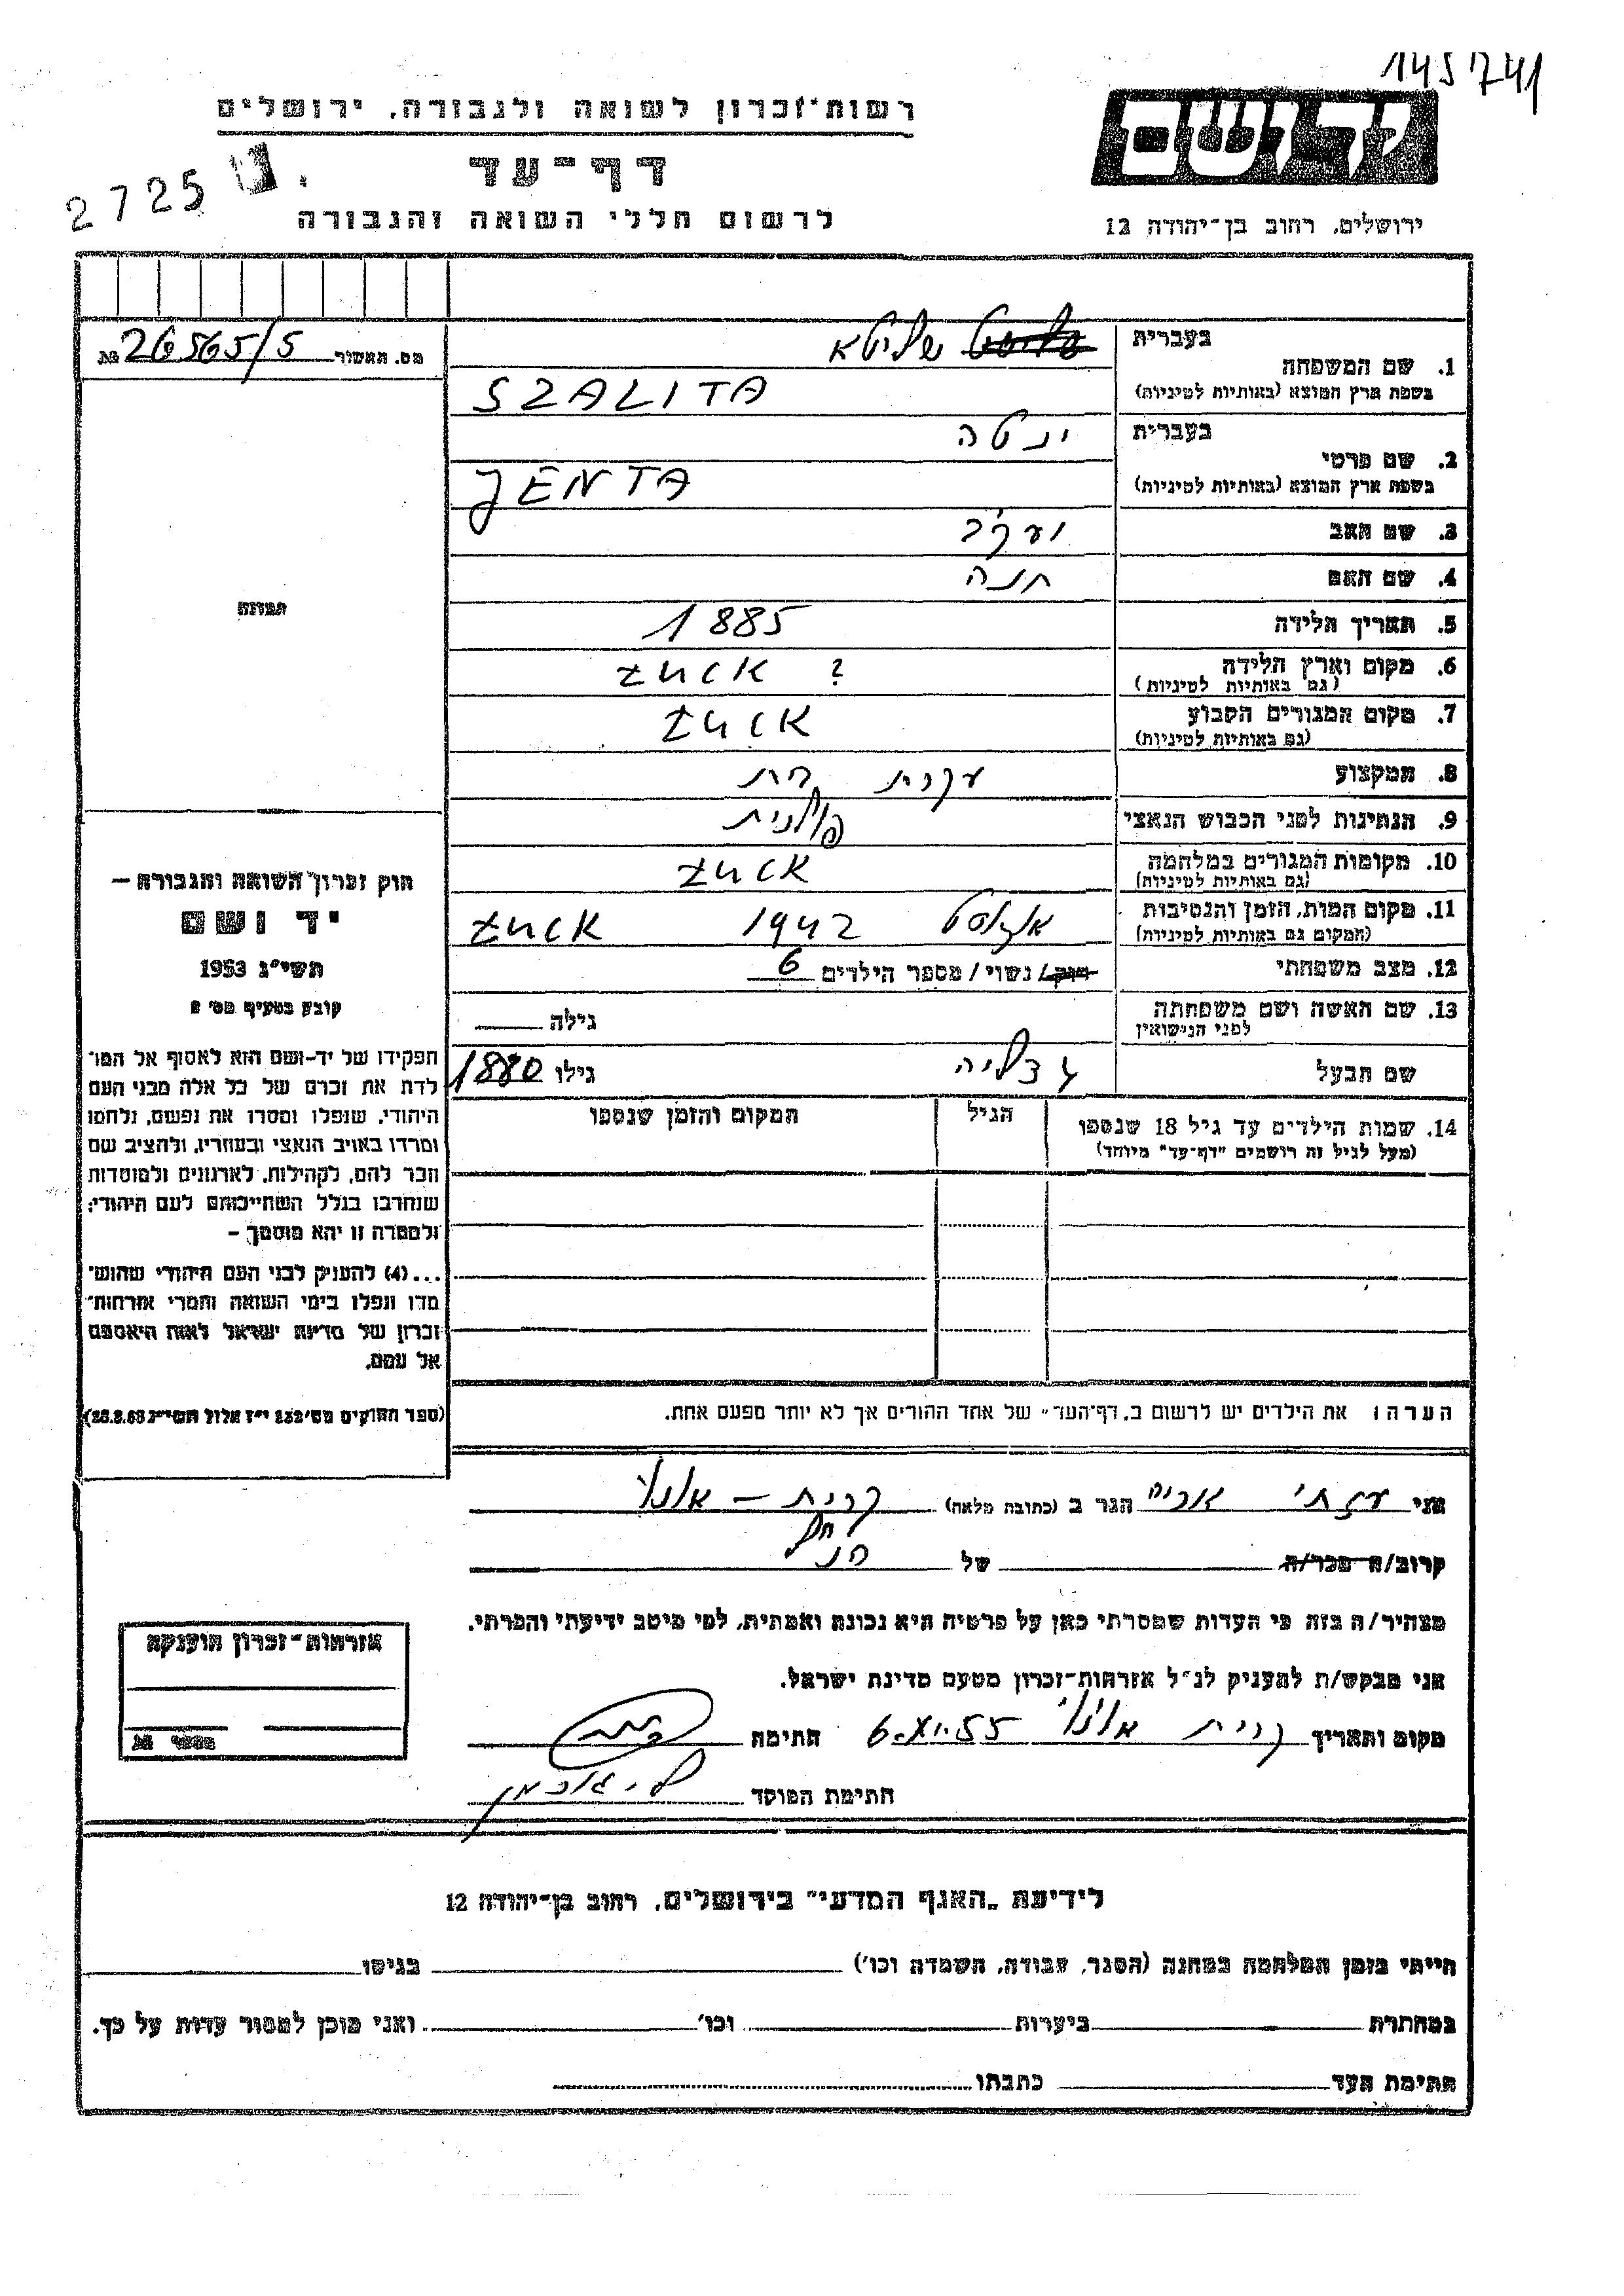 145741
רשות־זכרון לשואה ולגבורה, ירושלים
יד ושם
דף־עד
2725
לרשום חללי השואה והגבורה
ירושלים, רחוב בן־יהודה 12
מס. האשור 26565/5
בעברית
שליטא
1. שם המשפחה
בשפת ארץ המוצא (באותיות לטיניות)
SZALITA
בעברית
ינטה
2. שם פרטי
בשפת ארץ המוצא (באותיות לטיניות)
JENTA
3. שם האב
יעקב
4. שם האם
חנה
תמונה
5. תאריך הלידה
1885
6. מקום וארץ הלידה
(גם באותיות לטיניות)
ŁUCK ?
7. מקום המגורים הקבוע
(גם באותיות לטיניות)
ŁUCK
8. המקצוע
עקרת בית
9. הנתינות לפני הכבוש הנאצי
פולנית
10. מקומות המגורים במלחמה
(גם באותיות לטיניות)
ŁUCK
11. מקום המות, הזמן והנסיבות
(המקום גם באותיות לטיניות)
אוגוסט 1942 ŁUCK
12. מצב משפחתי
רווק/ נשוי / מספר הילדים 6
13. שם האשה ושם משפחתה
לפני הנישואין
גילה
שם הבעל
גדליה
גילו 1880
14. שמות הילדים עד גיל 18 שנספו
(מעל לגיל זה רושמים "דף־עד" מיוחד)
הגיל
המקום והזמן שנספו
הערה: את הילדים יש לרשום ב„דף־העד" של אחד ההורים אך לא יותר מפעם אחת.
חוק זכרון השואה והגבורה —
יד ושם
תשי"ג 1953
קובע בסעיף מס' 2
תפקידו של יד-ושם הוא לאסוף אל המו־
לדת את זכרם של כל אלה מבני העם
היהודי, שנפלו ומסרו את נפשם, נלחמו
ומרדו באויב הנאצי ובעוזריו, ולהציב שם
וזכר להם, לקהילות, לארגונים ולמוסדות
שנחרבו בגלל השתייכותם לעם היהודי;
ולמטרה זו יהא מוסמך —
...(4) להעניק לבני העם היהודי שהוש־
מדו ונפלו בימי השואה והמרי אזרחות־
זכרון של מדינת ישראל לאות היאספם
אל עמם.
(ספר החוקים מס' 132 י"ז אלול תשי"ג 28.8.53)
אני הגר ב (כתובת מלאה) קרית – אונו
קרוב/ה מכר/ה של
מצהיר/ה בזה כי העדות שמסרתי כאן על פרטיה היא נכונה ואמתית, לפי מיטב ידיעתי והכרתי.
אני מבקש/ת להעניק לנ"ל אזרחות־זכרון מטעם מדינת ישראל.
מקום ותאריך קרית אונו 6.XI.55 חתימה
חתימת הפוקד
אזרחות־זכרון הוענקה
מספר
לידיעת „האגף המדעי" בירושלים, רחוב בן־יהודה 12
הייתי בזמן המלחמה במחנה (הסגר, עבודה, השמדה וכו') בגיטו
במחתרת ביערות וכו' ואני מוכן למסור עדות על כך.
חתימת העד כתבתו